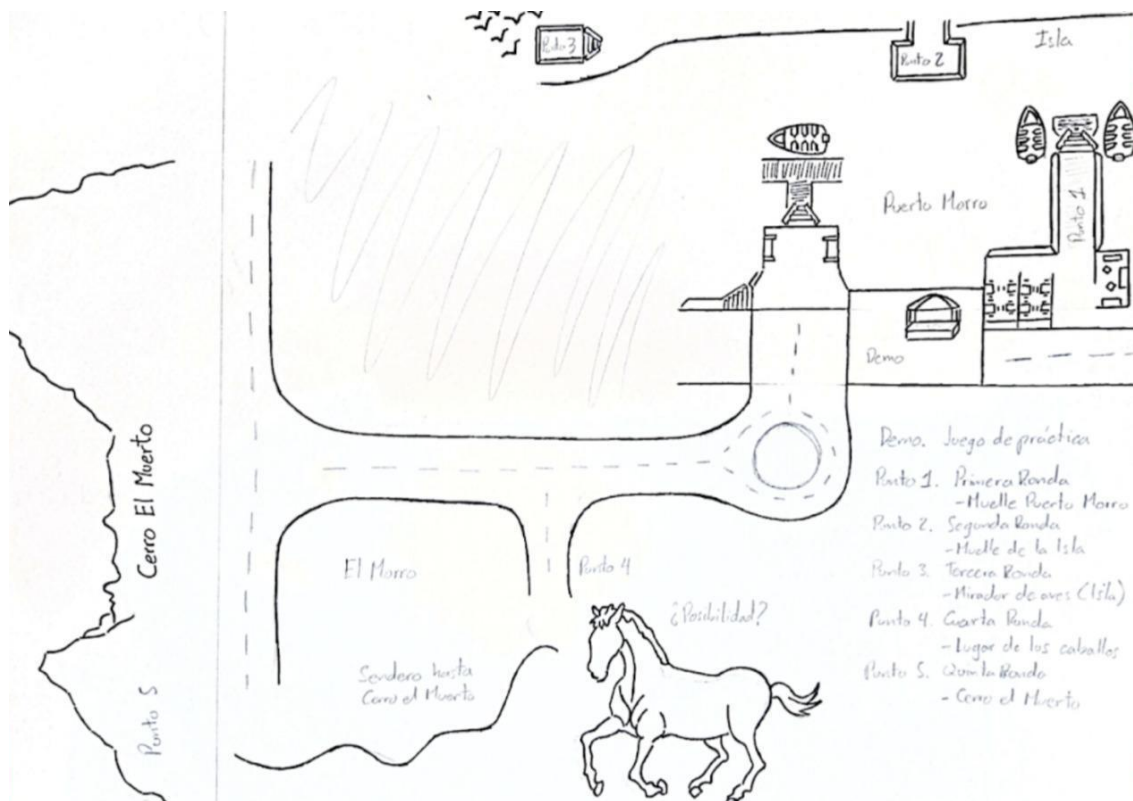 Punto 3
Punto 2
Isla
Puerto Morro
Punto 1
Demo
Cerro El Muerto
Punto 5
El Morro
Punto 4
Sendero hasta
Cerro el Muerto
¿Posibilidad?
Demo. Juego de práctica
Punto 1. Primera Ronda
- Muelle Puerto Morro
Punto 2. Segunda Ronda
- Muelle de la Isla
Punto 3. Tercera Ronda
- Mirador de aves (Isla)
Punto 4. Cuarta Ronda
- Lugar de los caballos
Punto 5. Quinta Ronda
- Cerro el Muerto